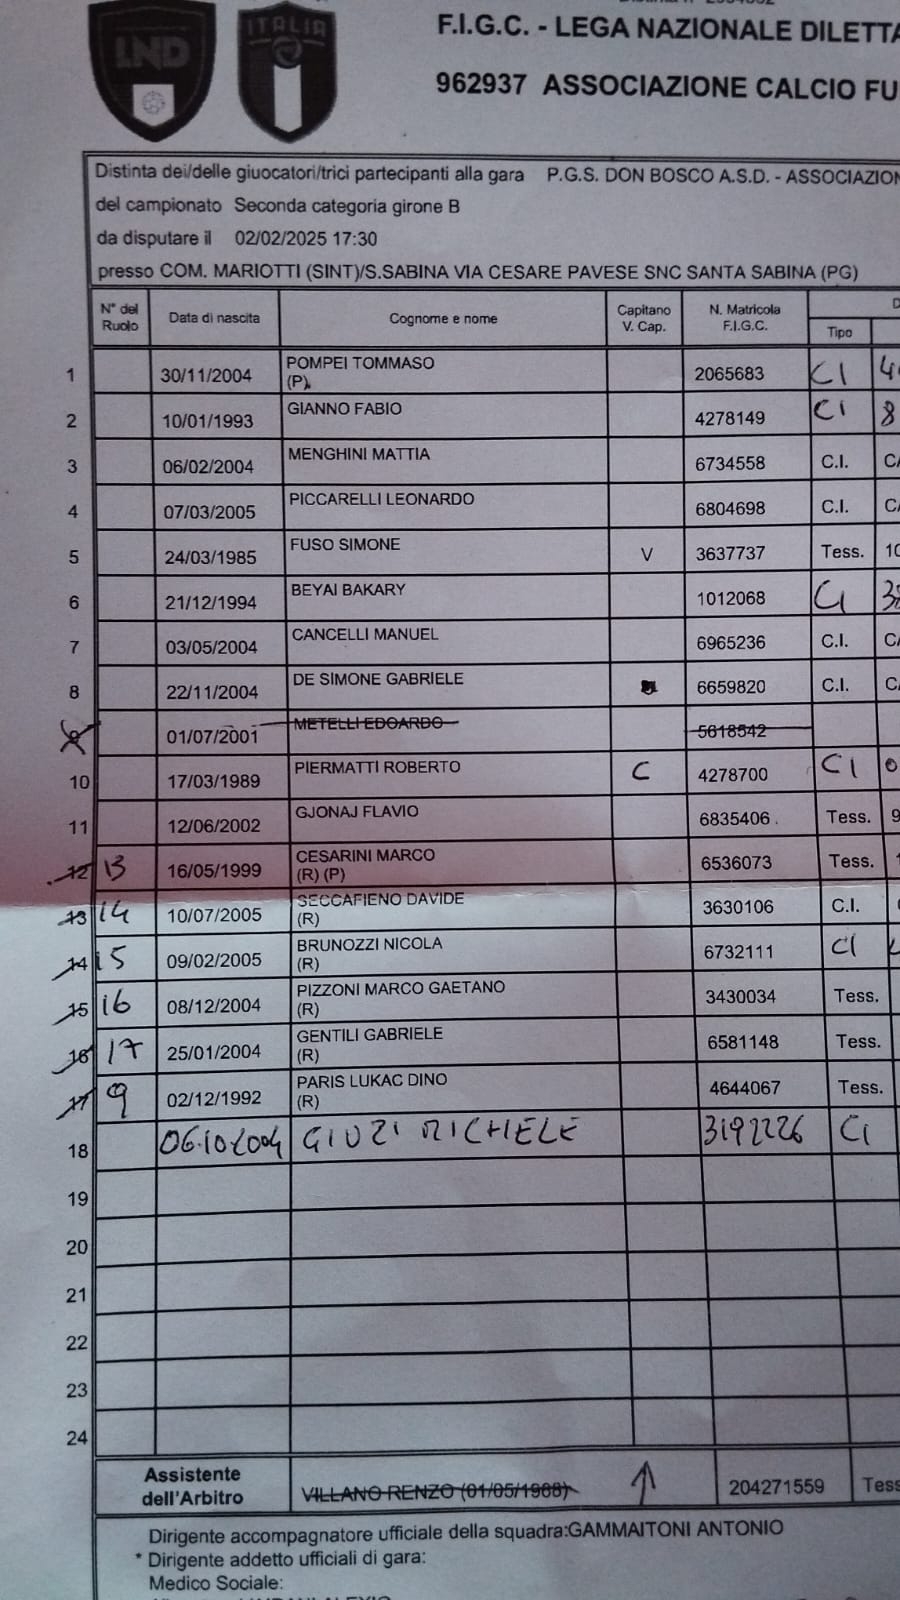 LND
ITALIA
F.I.G.C. - LEGA NAZIONALE DILETTA
962937 ASSOCIAZIONE CALCIO FU
Distinta dei/delle giuocatori/trici partecipanti alla gara P.G.S. DON BOSCO A.S.D. - ASSOCIAZION
del campionato Seconda categoria girone B
da disputare il 02/02/2025 17:30
presso COM. MARIOTTI (SINT)/S.SABINA VIA CESARE PAVESE SNC SANTA SABINA (PG)
N° del Ruolo Data di nascita Cognome e nome Capitano V. Cap. N. Matricola F.I.G.C. Tipo
1 30/11/2004 POMPEI TOMMASO (P) 2065683 CI 4
2 10/01/1993 GIANNO FABIO 4278149 CI 8
3 06/02/2004 MENGHINI MATTIA 6734558 C.I. CA
4 07/03/2005 PICCARELLI LEONARDO 6804698 C.I. CA
5 24/03/1985 FUSO SIMONE V 3637737 Tess. 10
6 21/12/1994 BEYAI BAKARY 1012068 CI 38
7 03/05/2004 CANCELLI MANUEL 6965236 C.I. CA
8 22/11/2004 DE SIMONE GABRIELE 6659820 C.I. CA
9 01/07/2001 METELLI EDOARDO 5618542
10 17/03/1989 PIERMATTI ROBERTO C 4278700 CI 0
11 12/06/2002 GJONAJ FLAVIO 6835406 Tess. 9
12 13 16/05/1999 CESARINI MARCO (R) (P) 6536073 Tess. 1
13 14 10/07/2005 SECCAFIENO DAVIDE (R) 3630106 C.I.
14 15 09/02/2005 BRUNOZZI NICOLA (R) 6732111 CI
15 16 08/12/2004 PIZZONI MARCO GAETANO (R) 3430034 Tess.
16 17 25/01/2004 GENTILI GABRIELE (R) 6581148 Tess.
17 9 02/12/1992 PARIS LUKAC DINO (R) 4644067 Tess.
18 06.10.2004 GIUZI MICHELE 3192226 CI
19
20
21
22
23
24
Assistente dell'Arbitro VILLANO RENZO (01/05/1988) 204271559 Tess
Dirigente accompagnatore ufficiale della squadra:GAMMAITONI ANTONIO
* Dirigente addetto ufficiali di gara:
Medico Sociale: